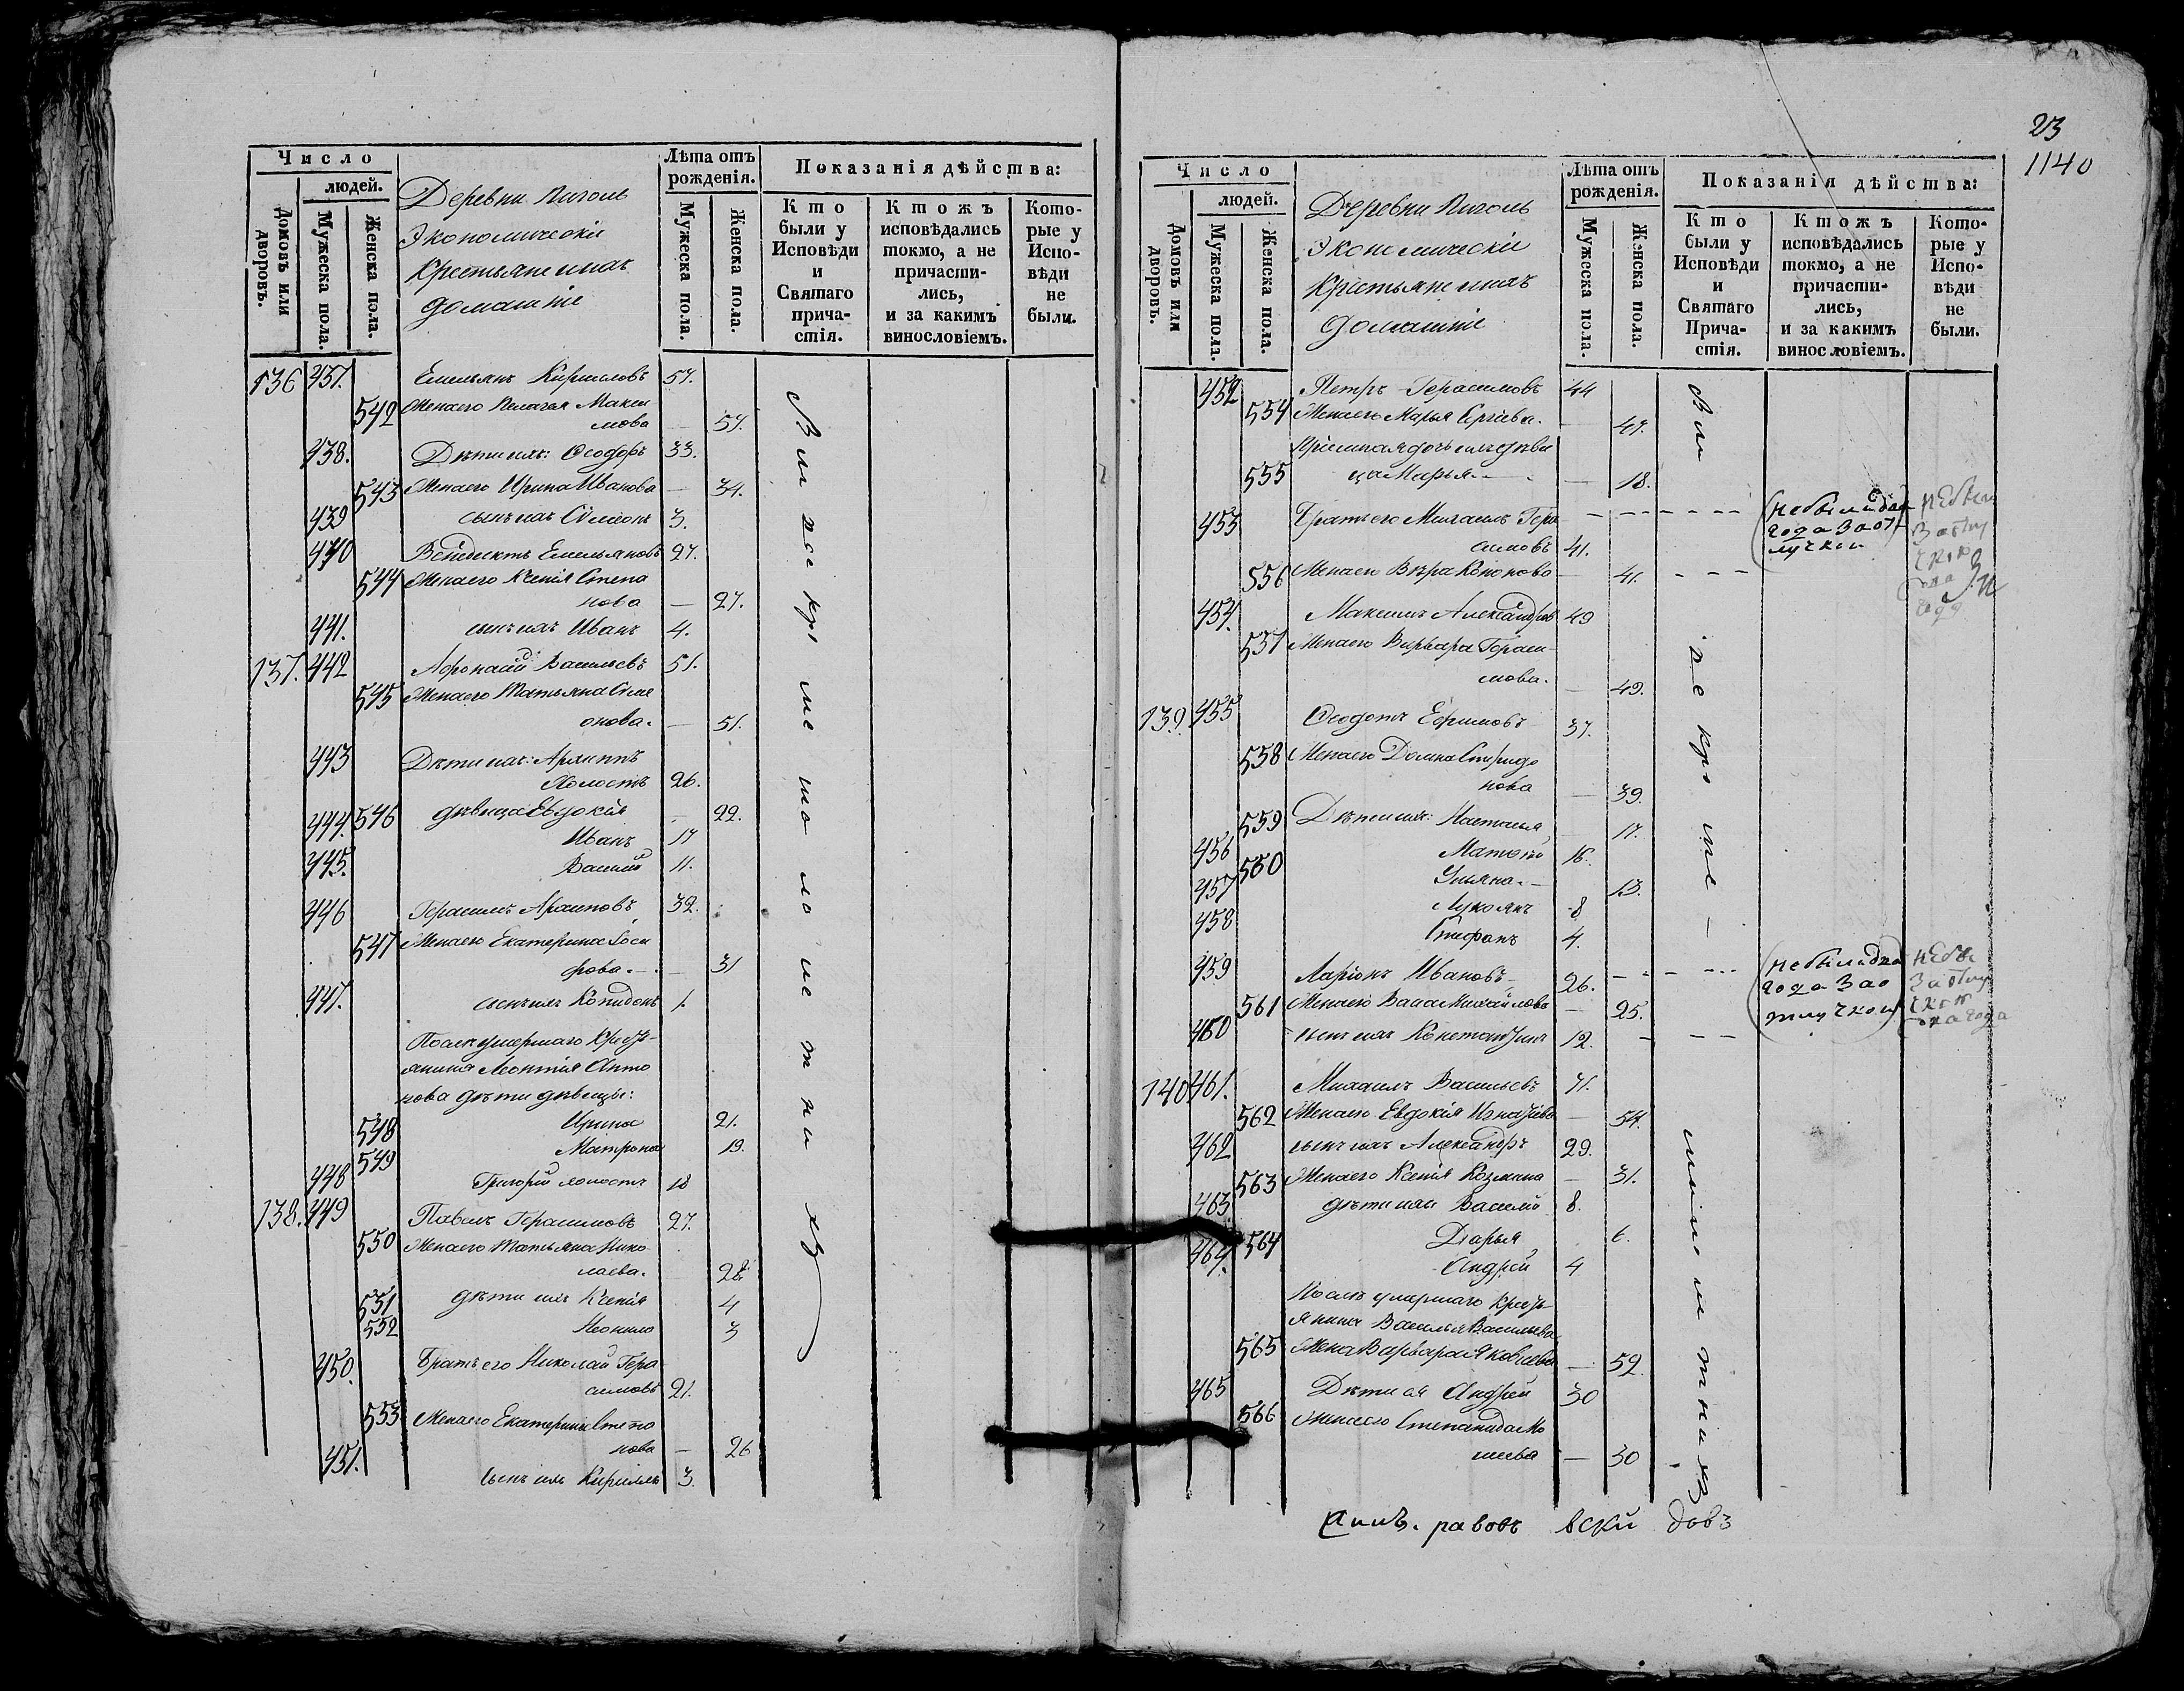 Число
людей.
Домовъ или дворовъ.
Мужеска пола.
Женска пола.
Деревни
Экономическіе
Крестьяне ихъ
домашніе
Лѣта отъ рожденія.
Мужеска пола.
Женска пола.
Показанія дѣйства:
Кто были у Исповѣди и Святаго причастія.
Ктожъ исповѣдались токмо, а не причастились, и за какимъ винословіемъ.
Которые у Исповѣди не были.
136 437. Емельянъ Кириловъ 57.
542 Жена его Пелагея Макси
мова — 57.
438. Дѣти ихъ: Ѳеодоръ 33.
543 Жена его Ирина Иванова — 34.
439 сынъ ихъ Сѵмеонъ 3.
440 Венедиктъ Емельяновъ 27.
544 Жена его Ксенія Степа
нова — 27.
441. сынъ ихъ Иванъ 4.
137. 442 Афонасій Васильевъ 51.
545 Жена его Татьяна Сѵме
онова. — 51.
443 Дѣти ихъ: Архиппъ
холостъ 26.
546 дѣвица Евдокія — 22.
444. Иванъ 17
445. Василій 11.
446 Герасимъ Архиповъ 32.
547 Жена его Екатерина
31
447. сынъ ихъ 1.
После умершаго Крестья
янина Леонтія Анто
нова дѣти дѣвицы:
548 Ирина 21.
549 Матрона 19.
448 Григорій холостъ 18
138. 449 Павелъ Герасимовъ 27.
550 Жена его Татьяна Нико
лаева. 28
551 дѣти ихъ Ксенія 4
552 Неонила 3
450. Братъ его Николай Гера
симовъ 21.
553 Жена его Екатерина Степа
нова — 26
451. сынъ ихъ Кириллъ 3.
23
1140
Число
людей.
Домовъ или дворовъ.
Мужеска пола.
Женска пола.
Деревни
Экономическіе
Крестьяне ихъ
домашніе
Лѣта отъ рожденія.
Мужеска пола.
Женска пола.
Показанія дѣйства:
Кто были у Исповѣди и Святаго Причастія.
Ктожъ исповѣдались токмо, а не причастились, и за какимъ винословіемъ.
Которые у Исповѣди не были.
452 Петръ Герасимовъ 44
554 Жена его Марья Сергіева. — 47.
дочь ихъ дѣви
555 ца Марья — 18.
453 Братъ его Михаилъ Гера
симовъ 41.
не были два
года за от
лучкой
556 Жена его Вѣра Кононова — 41.
454. Максимъ Александровъ 49
557 Жена его Варвара Гераси
мова. — 49.
139. 455 Ѳеодотъ Ефимовъ 37.
558 Жена его Домна Спиридо
нова — 39.
559 Дѣти ихъ: Наталья 17.
456 Матвей 16.
550 Ульяна. — 13.
457 Лукьянъ 8
458 Стефанъ 4.
459 Ларіонъ Ивановъ 26.
не были два
года за о
тлучкой
561 Жена его Васса Михайлова — 25.
460 сынъ ихъ Константинъ 12.
140 461. Михаилъ Васильевъ
562 Жена его Евдокія Игнатіева — 54.
462 сынъ ихъ Александръ 29.
563 Жена его Ксенія Козмина — 31.
463 дѣти ихъ Василій 8.
564 Дарья 6.
464. Андрей 4
Послѣ умершаго Кресть
янина Василья Васильева
565 Жена Варвара Яковлева — 52.
465 Дѣти ея Андрей 30
566 Жена его Степанида Мо
исеева — 30